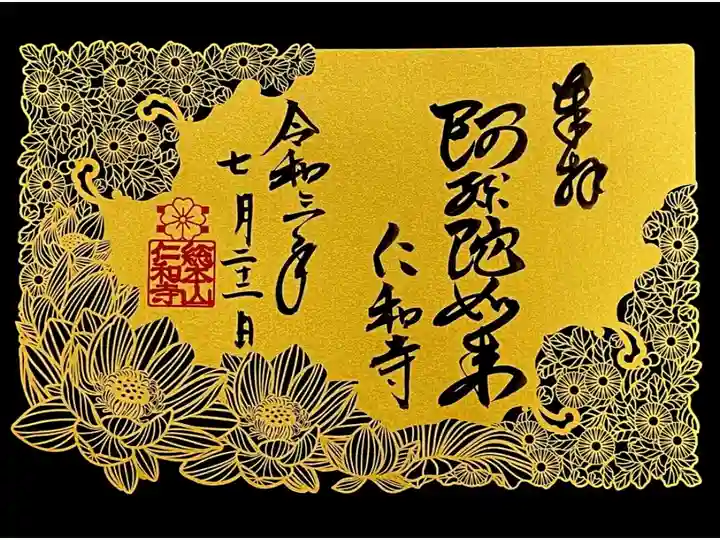 奉拝
阿弥陀如来
仁和寺
令和三年
七月二十二日
總本山
仁和寺